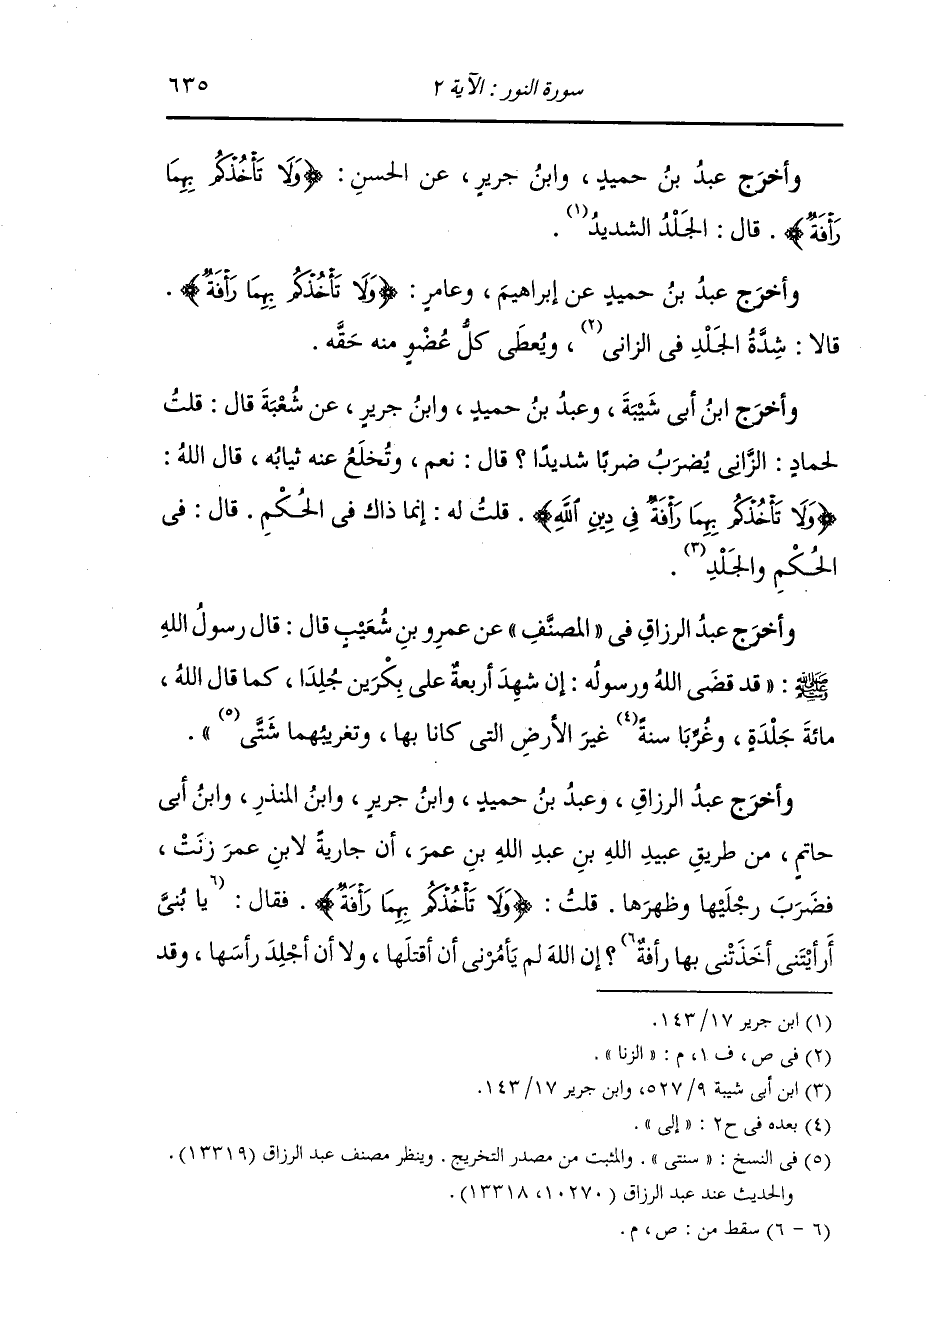 سورة النور : الآية ٢ ٦٣٥
وأخرَج عبدُ بنُ حميدٍ ، وابنُ جريرٍ ، عن الحسنِ : ﴿وَلَا تَأْخُذْكُم بِهِمَا
رَأْفَةٌ﴾ . قال : الجَلْدُ الشديدُ(١) .
وأخرَج عبدُ بنُ حميدٍ عن إبراهيمَ ، وعامرٍ : ﴿وَلَا تَأْخُذْكُم بِهِمَا رَأْفَةٌ﴾ .
قالا : شِدَّةُ الجَلْدِ فى الزانى(٢) ، ويُعطَى كلُّ عُضْوٍ منه حَقَّه .
وأخرَج ابنُ أبى شَيْبَةَ ، وعبدُ بنُ حميدٍ ، وابنُ جريرٍ ، عن شُعْبَةَ قال : قلتُ
لحمادٍ : الزَّانِى يُضرَبُ ضربًا شديدًا ؟ قال : نعم ، وتُخلَعُ عنه ثيابُه ، قال اللهُ :
﴿وَلَا تَأْخُذْكُم بِهِمَا رَأْفَةٌ فِى دِينِ ٱللَّهِ﴾ . قلتُ له : إنما ذاك فى الحُكْمِ . قال : فى
الحُكْمِ والجَلْدِ(٣) .
وأخرَج عبدُ الرزاقِ فى « المصنَّفِ » عن عمرِو بنِ شُعَيْبٍ قال : قال رسولُ اللهِ
ﷺ : « قد قضَى اللهُ ورسولُه : إن شهِدَ أربعةٌ على بِكْرَين جُلِدَا ، كما قال اللهُ ،
مائةَ جَلْدَةٍ ، وغُرِّبَا سنةً(٤) غيرَ الأرضِ التى كانا بها ، وتغريبُهما شَتَّى(٥) » .
وأخرَج عبدُ الرزاقِ ، وعبدُ بنُ حميدٍ ، وابنُ جريرٍ ، وابنُ المنذرِ ، وابنُ أبى
حاتمٍ ، من طريقِ عبيدِ اللهِ بنِ عبدِ اللهِ بنِ عمرَ ، أن جاريةً لابنِ عمرَ زنَتْ ،
فضَرَبَ رجْلَيْها وظهرَها . قلتُ : ﴿وَلَا تَأْخُذْكُم بِهِمَا رَأْفَةٌ﴾ . فقال : (٦يا بُنىَّ
أَرأيْتَنى أخَذَتْنى بها رأفةٌ٦) ؟ إن اللهَ لم يَأمُرْنى أن أقتلَها ، ولا أن أجْلِدَ رأسَها ، وقد
(١) ابن جرير ١٧/ ١٤٣.
(٢) فى ص ، ف ١، م : « الزنا » .
(٣) ابن أبى شيبة ٩/ ٥٢٧، وابن جرير ١٧/ ١٤٣.
(٤) بعده فى ح٢ : « إلى » .
(٥) فى النسخ : « سنتى » . والمثبت من مصدر التخريج . وينظر مصنف عبد الرزاق (١٣٣١٩) .
والحديث عند عبد الرزاق ( ١٠٢٧٠، ١٣٣١٨) .
(٦ - ٦) سقط من : ص ، م .